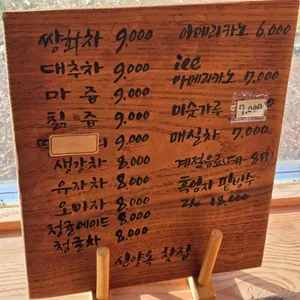 쌍화차 9,000
대추차 9,000
마 즙 9,000
칡 즙 9,000
9,000
생강차 8,000
유자차 8,000
오미자 8,000
청귤에이드 8,000
청귤차 8,000
아메리카노 6,000
ice
아메리카노 7,000
미숫가루 7,000
매실차 7,000
계절음료
흑임자 팥빙수
18,000
산양옥 찻집